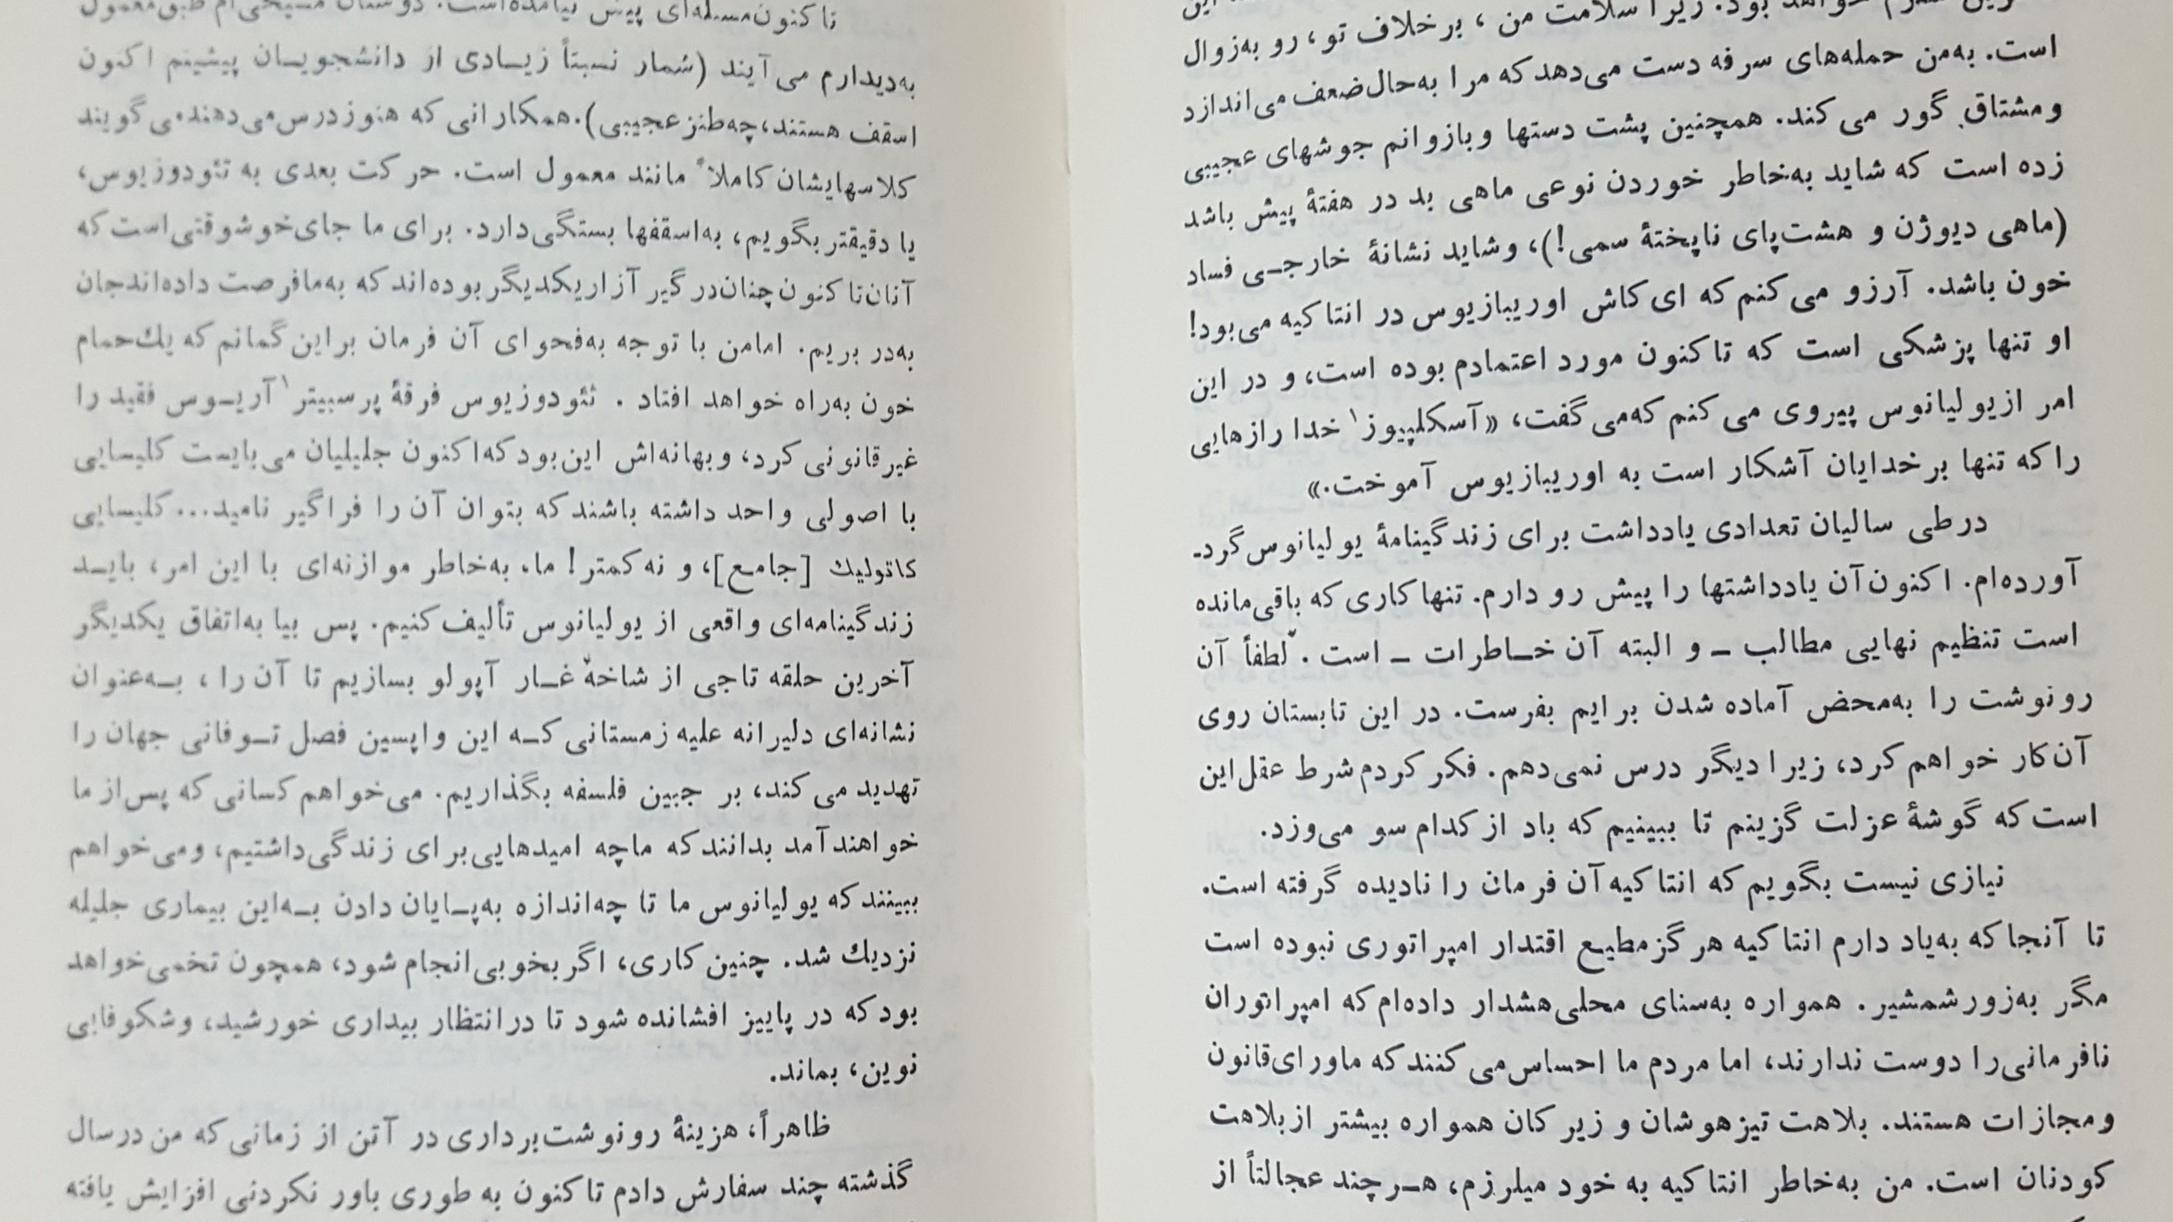 خواهد بود. زیرا سلامت من ، برخلاف تو ، رو به‌زوال
است. به‌من حمله‌های سرفه دست می‌دهد که مرا به‌حال ضعف می‌اندازد
و مشتاق گور می کند. همچنین پشت دستها و بازوانم جوشهای عجیبی
زده است که شاید به‌خاطر خوردن نوعی ماهی بد در هفتهٔ پیش باشد
(ماهی دیوژن و هشت‌پای ناپختهٔ سمی!)، و شاید نشانهٔ خارجـی فساد
خون باشد. آرزو می کنم که ای کاش اوریبازیوس در انتاکیه می‌بود!
او تنها پزشکی است که تا کنون مورد اعتمادم بوده است، و در این
امر از یولیانوس پیروی می کنم که‌می گفت، «آسکلپیوز۱ خدا رازهایی
را که تنها بر خدایان آشکار است به اوریبازیوس آموخت.»
در طی سالیان تعدادی یادداشت برای زندگینامهٔ یولیانوس گرد-
آورده‌ام. اکنون آن یادداشتها را پیش رو دارم. تنها کاری که باقی‌مانده
است تنظیم نهایی مطالب ـ و البته آن خـاطرات ـ است . لطفاً آن
رونوشت را به‌محض آماده شدن برایم بفرست. در این تابستان روی
آن کار خواهم کرد، زیرا دیگر درس نمی‌دهم. فکر کردم شرط عقل این
است که گوشهٔ عزلت گزینم تا ببینیم که باد از کدام سو می‌وزد.
نیازی نیست بگویم که انتاکیه آن فرمان را نادیده گرفته است.
تا آنجا که به‌یاد دارم انتاکیه هرگز مطیع اقتدار امپراتوری نبوده است
مگر به‌زور شمشیر. همواره به‌سنای محلی هشدار داده‌ام که امپراتوران
نافرمانی را دوست ندارند، اما مردم ما احساس می کنند که ماورای قانون
و مجازات هستند. بلاهت تیزهوشان و زیرکان همواره بیشتر از بلاهت
کودنان است. من به‌خاطر انتاکیه به خود میلرزم، هـرچند عجالتاً از
تا کنون مسئله‌ای پیش نیامده‌است. دوستان مسیحی‌ام طبق‌معمول
به‌دیدارم می آیند (شمار نسبتاً زیـادی از دانشجویـان پیشینم اکنون
اسقف هستند، چه‌طنز عجیبی). همکارانی که هنوز درس‌می‌دهند می گویند
کلاسهایشان کاملاً مانند معمول است. حرکت بعدی به تئودوزیوس،
یا دقیقتر بگویم، به‌اسقفها بستگی دارد. برای ما جای خوشوقتی است که
آنان تا کنون چنان درگیر آزار یکدیگر بوده‌اند که به‌مافرصت داده‌اند جان
به‌در بریم. اما من با توجه به‌فحوای آن فرمان براین گمانم که یك حمام
خون به‌راه خواهد افتاد . تئودوزیوس فرقهٔ پرسبیتر۱ آریـوس فقید را
غیرقانونی کرد، و بهانه‌اش این بود که‌اکنون جلیلیان می‌بایست کلیسایی
با اصولی واحد داشته باشند که بتوان آن را فراگیر نامید... کلیسایی
کاتولیك [جامع]، و نه کمتر! ما، به‌خاطر موازنه‌ای با این امر، بایـد
زندگینامه‌ای واقعی از یولیانوس تألیف کنیم. پس بیا به‌اتفاق یکدیگر
آخرین حلقه تاجی از شاخهٔ غـار آپولو بسازیم تا آن را ، بـه‌عنوان
نشانه‌ای دلیرانه علیه زمستانی کـه این واپسین فصل تـوفانی جهان را
تهدید می کند، بر جبین فلسفه بگذاریم. می‌خواهم کسانی که پس از ما
خواهند آمد بدانند که ما چه امیدهایی برای زندگی داشتیم، و می‌خواهم
ببینند که یولیانوس ما تا چه‌اندازه به‌پـایان دادن بـه‌این بیماری جلیله
نزدیك شد. چنین کاری، اگر بخوبی انجام شود، همچون تخمی خواهد
بود که در پاییز افشانده شود تا در انتظار بیداری خورشید، و شکوفایی
نوین، بماند.
ظاهراً، هزینهٔ رونوشت‌برداری در آتن از زمانی که من در سال
گذشته چند سفارش دادم تا کنون به طوری باور نکردنی افزایش یافته